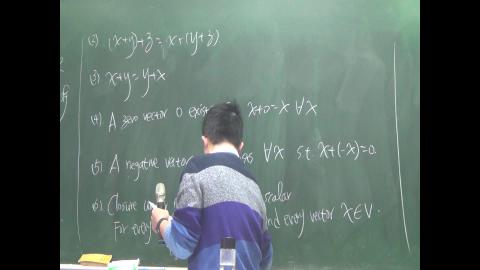 (2) (x+y)+z = x+(y+z)
(3) x+y = y+x
(4) A zero vector 0 exist x+0=x ∀x
(5) A negative vector ∀x s.t. x+(-x)=0.
(6) Closure
For every and every vector x∈V.